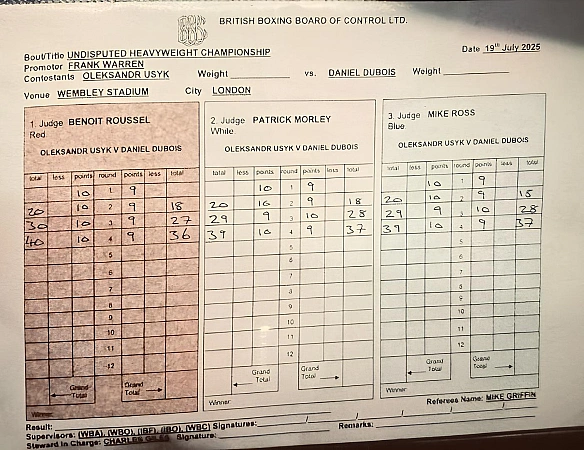 BRITISH BOXING BOARD OF CONTROL LTD.
Bout/Title UNDISPUTED HEAVYWEIGHT CHAMPIONSHIP Date 19th July 2025
Promotor FRANK WARREN
Contestants OLEKSANDR USYK Weight vs. DANIEL DUBOIS Weight
Venue WEMBLEY STADIUM City LONDON
1. Judge BENOIT ROUSSEL
Red
OLEKSANDR USYK V DANIEL DUBOIS
total less points round points less total
10 1 9
20 10 2 9 18
30 10 3 9 27
40 10 4 9 36
5
6
7
8
9
10
11
12
Grand Total Grand Total
Winner
2. Judge PATRICK MORLEY
White
OLEKSANDR USYK V DANIEL DUBOIS
total less points round points less total
10 1 9
20 10 2 9 18
29 9 3 10 28
39 10 4 9 37
5
6
7
8
9
10
11
12
Grand Total Grand Total
Winner
3. Judge MIKE ROSS
Blue
OLEKSANDR USYK V DANIEL DUBOIS
total less points round points less total
10 1 9
20 10 2 9 18
29 9 3 10 28
39 10 4 9 37
5
6
7
8
9
10
11
12
Grand Total Grand Total
Winner
Referees Name: MIKE GRIFFIN
Result: Remarks:
Supervisors: (WBA), (WBO), (IBF), (IBO), (WBC) Signatures:
Steward in Charge: CHARLES GILES Signature: